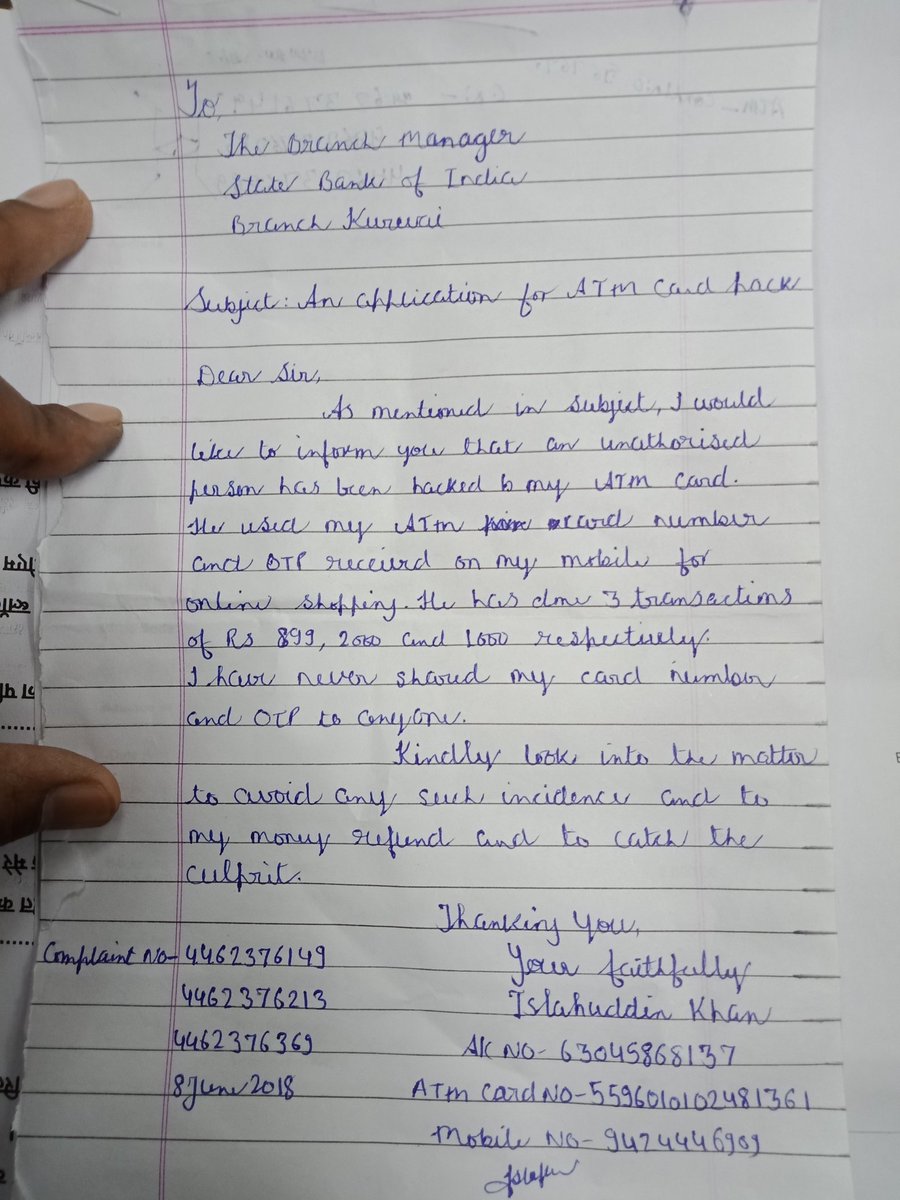 To,
The Branch Manager
State Bank of India
Branch Kurwai
Subject: An application for ATM card hack
Dear Sir,
As mentioned in subject, I would
like to inform you that an unathorised
person has been hacked to my ATM card.
He used my ATM card number
and OTP received on my mobile for
online shopping. He has done 3 transactions
of Rs 899, 2000 and 1000 respectively.
I have never shared my card number
and OTP to anyone.
Kindly look into the matter
to avoid any such incidence and to
my money refund and to catch the
culprit.
Thanking You,
Complaint No- 4462376149
Your faithfully
4462376213
Islahuddin Khan
4462376369
A/C NO- 63045868137
8 June 2018
ATM Card NO- 5596010102481361
Mobile NO- 9424446909